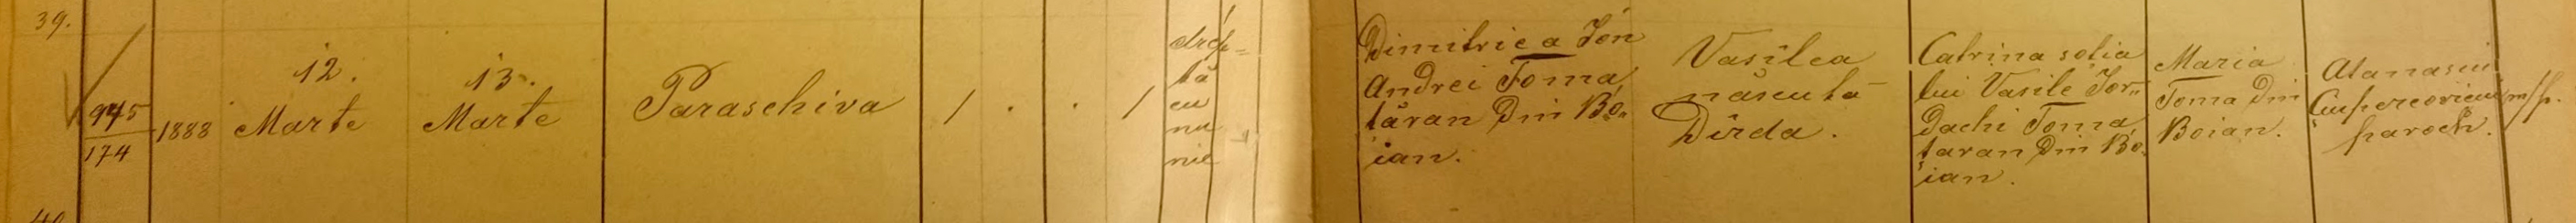 39.
945
174
1888
12.
Marte
13.
Marte
Paraschiva
/ . . /
drép=
tă
cu
nu
nie
Dimitrie a Ión
Andrei Toma
țăran Din Bo„
ian.
Vasilca
născută
Dîrda.
Catrina soția
lui Vasile Ior„
dachi Toma
țaran Din Bo„
ian.
Maria
Toma Din
Boian.
Atanasiu
paroch.
m/p.
40